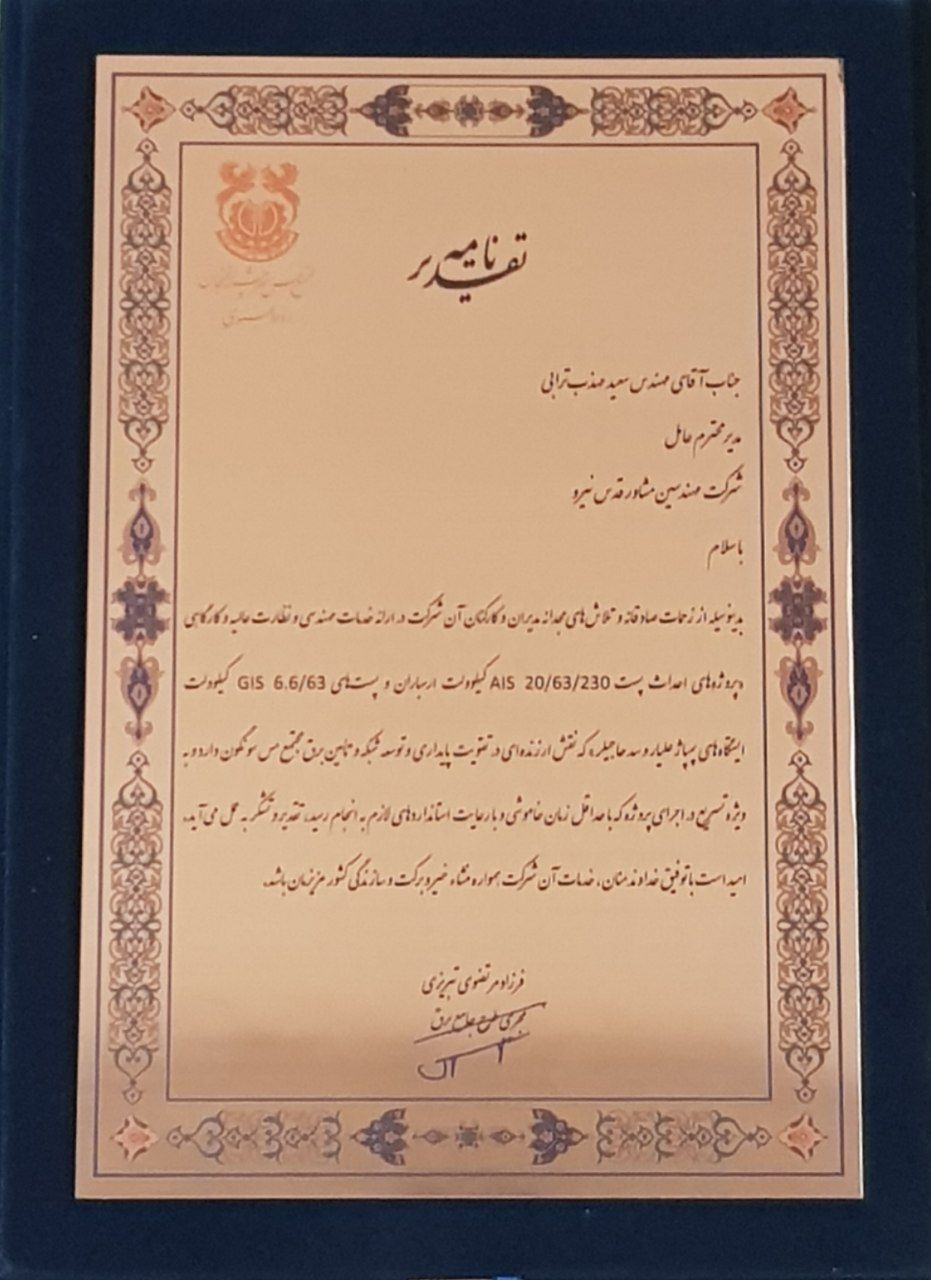 تقدیرنامه
جناب آقای مهندس سعید مهذب ترابی
مدیر محترم عامل
شرکت مهندسین مشاور قدس نیرو
با سلام
بدینوسیله از زحمات صادقانه و تلاش‌های مجدانه مدیران و کارکنان آن شرکت در ارائه خدمات مهندسی و نظارت عالیه و کارگاهی
پروژه‌های احداث پست AIS 20/63/230 کیلوولت ارسباران و پست‌های GIS 6.6/63 کیلوولت
ایستگاه‌های پمپاژ علیار و سد حاجیلر، که نقش ارزنده‌ای در تقویت پایداری و توسعه شبکه و تأمین برق مجتمع مس سونگون دارد و به
ویژه تسریع در اجرای پروژه که با حداقل زمان خاموشی و با رعایت استانداردهای لازم به انجام رسید، تقدیر و تشکر به عمل می‌آید.
امید است با توفیق خداوند منان، خدمات آن شرکت همواره منشاء خیر و برکت و سازندگی کشور عزیزمان باشد.
فرزاد مرتضوی تبریزی
مجری طرح جامع برق